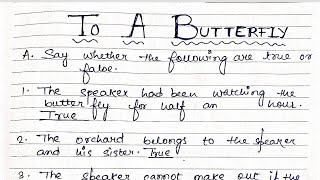 To A Butterfly
A. Say whether the following are true or
false.
1. The speaker had been watching the
butterfly for half an hour.
True
2. The orchard belongs to the speaker
and his sister. True
3. The speaker cannot make out if the